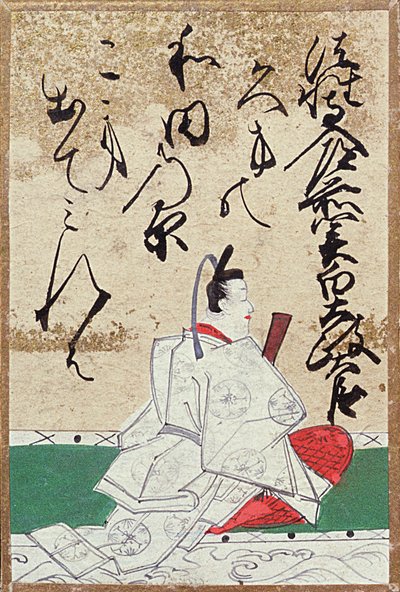 法性寺入道前関白太政大臣
和田の原
こき出てみれは
久かたの